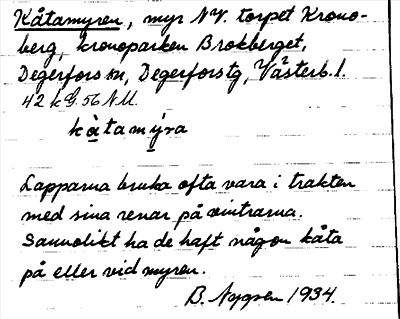 Kåtamyren, myr NV. torpet Krono-
berg, kronoparken Brokberget,
Degerfors sn, Degerfors tg, Västerb. l.
42 k G. 56 N U.
kàtamy̱ra
Lapparna bruka ofta vara i trakten
med sina renar på vintrarna.
Sannolikt ha de haft någon kåta
på eller vid myren.
B. Nygren 1934.